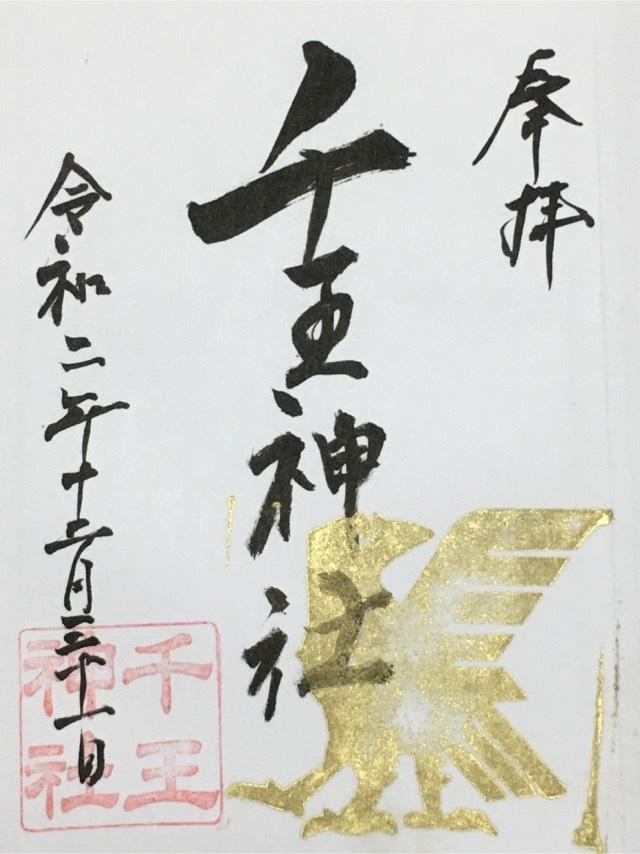 奉拝
千王神社
令和二年十二月三十一日
千王
神社